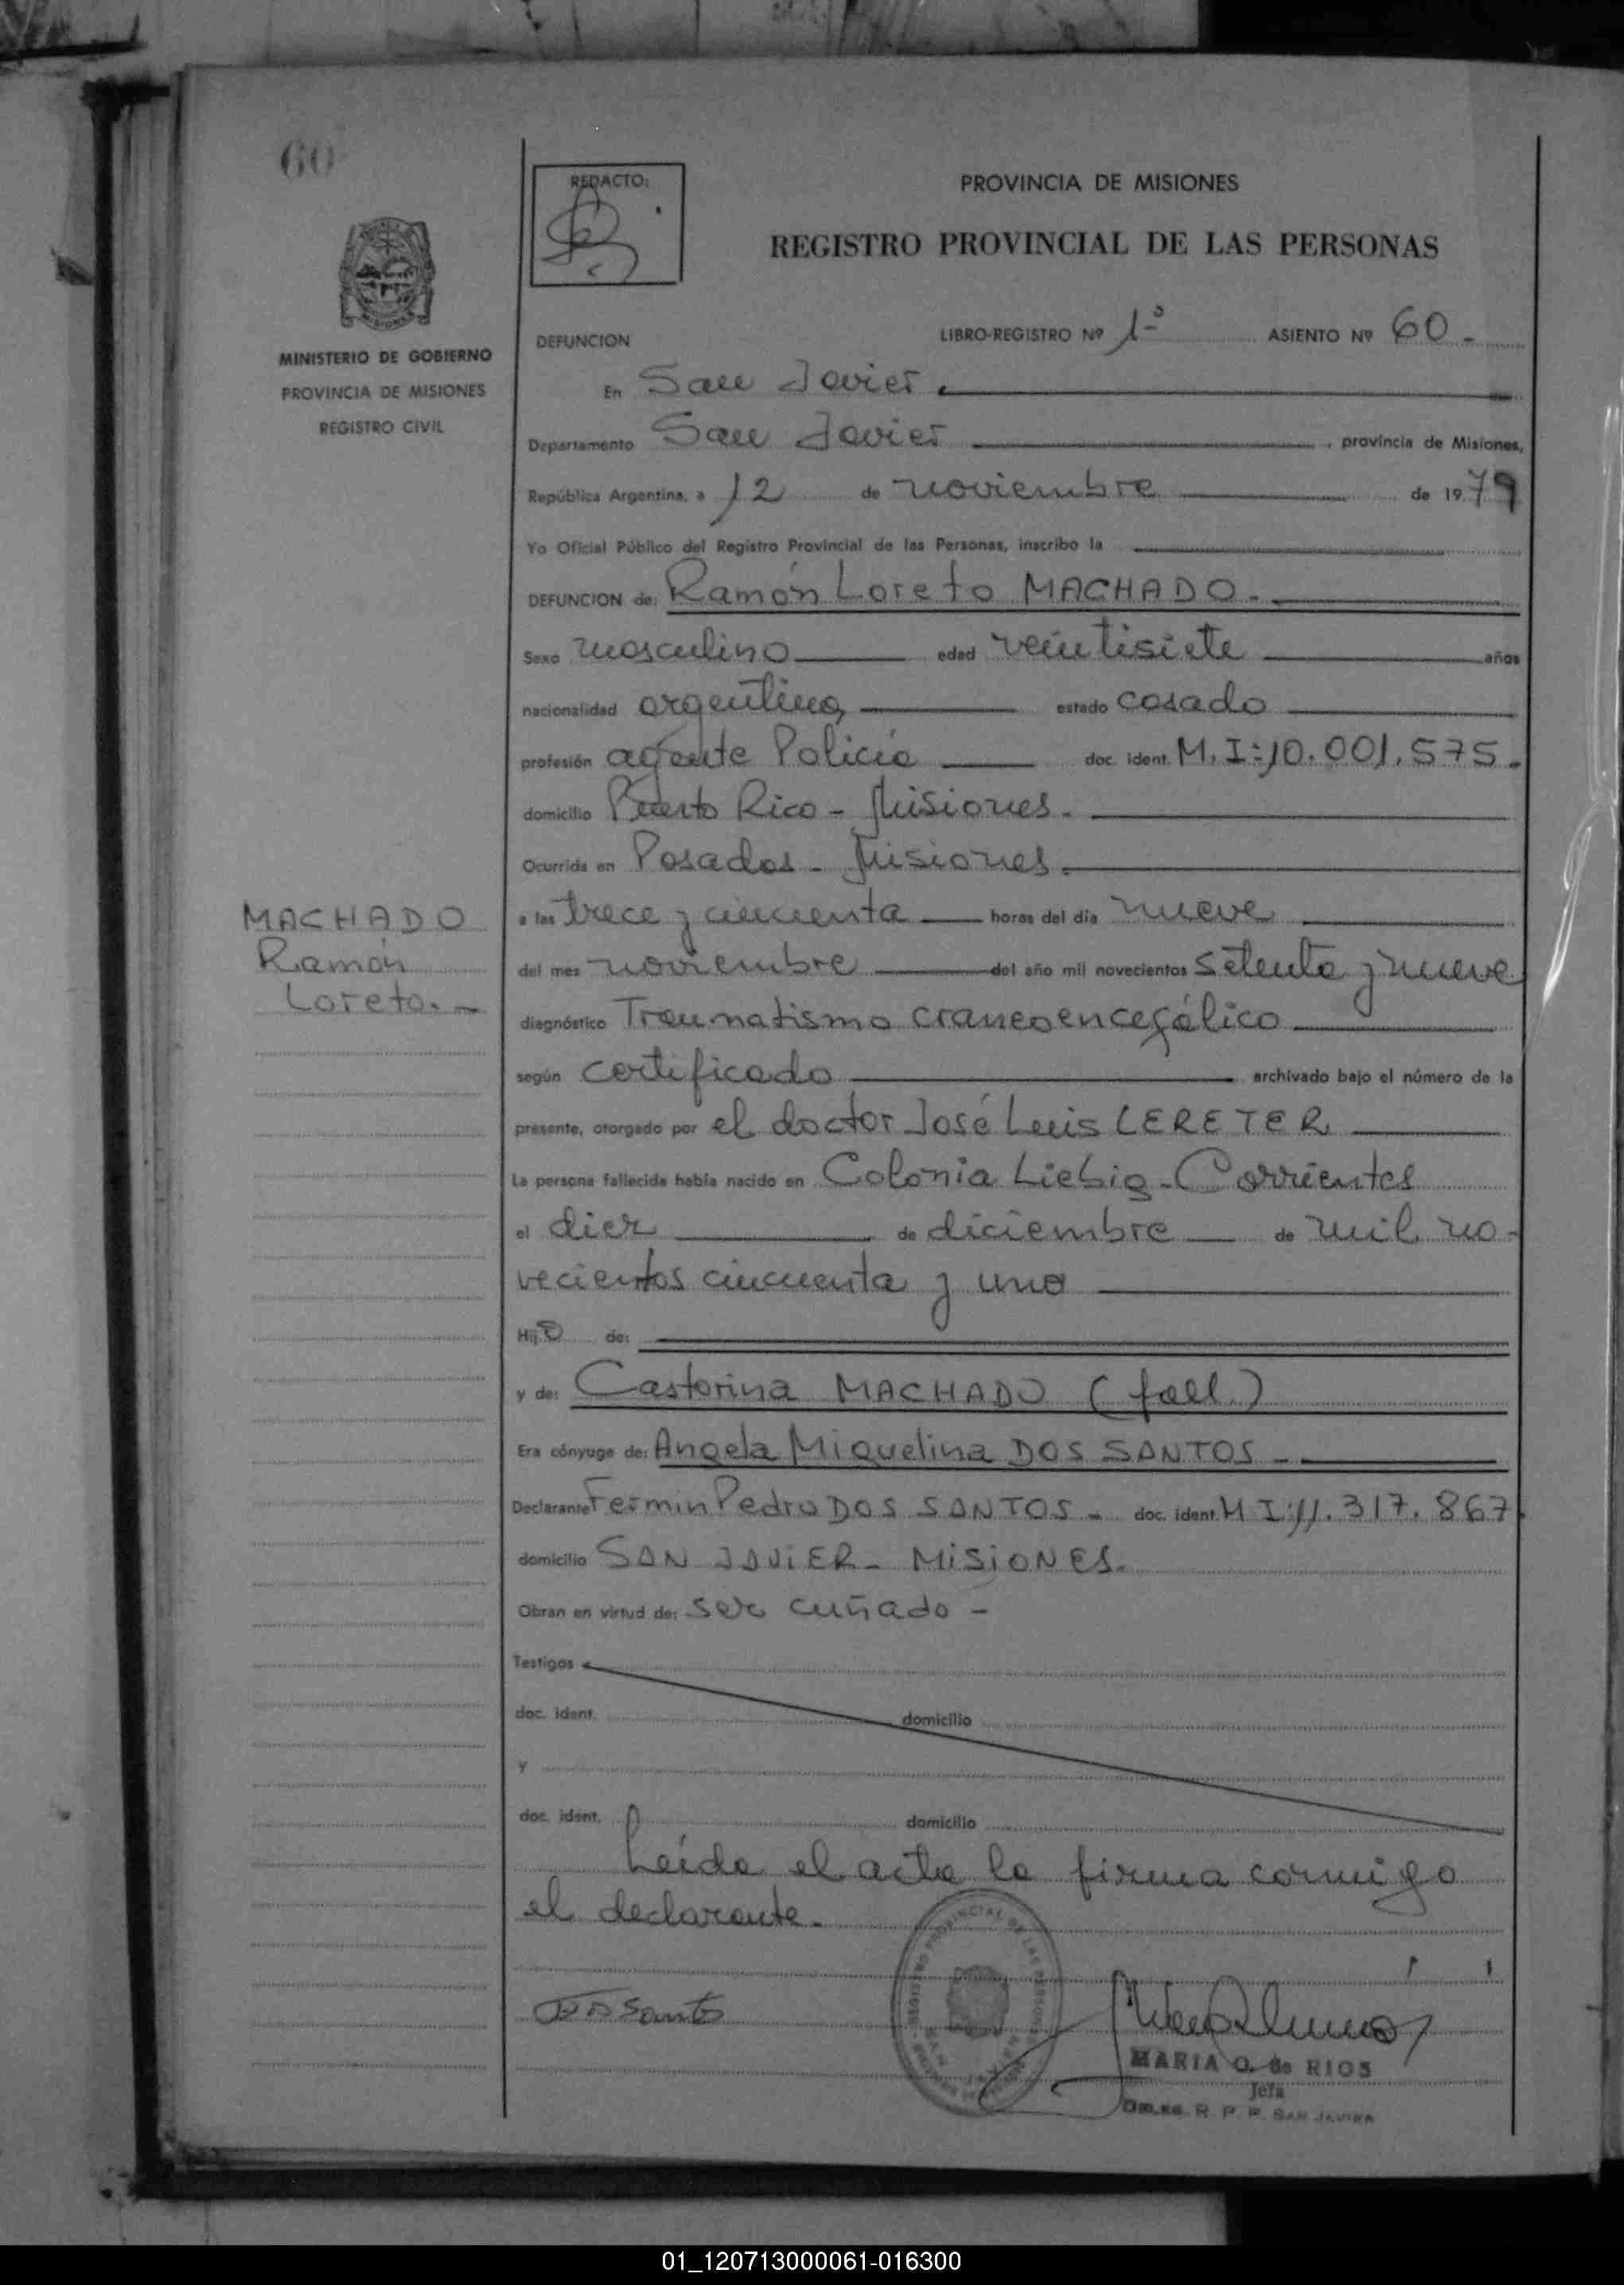 60
REDACTO:
PROVINCIA DE MISIONES
REGISTRO PROVINCIAL DE LAS PERSONAS
MISIONES
MINISTERIO DE GOBIERNO
PROVINCIA DE MISIONES
REGISTRO CIVIL
DEFUNCION LIBRO-REGISTRO Nº 1º ASIENTO Nº 60.-
En San Javier.
Departamento San Javier, provincia de Misiones,
República Argentina, a 12 de noviembre de 1979
Yo Oficial Público del Registro Provincial de las Personas, inscribo la
DEFUNCION de: Ramón Loreto MACHADO.-
Sexo masculino edad veintisiete años
nacionalidad argentino, estado casado
profesión agente Policía doc. ident. M.I:10.001.575.
domicilio Puerto Rico - Misiones.
Ocurrida en Posadas - Misiones.
a las trece y cincuenta horas del día nueve
del mes noviembre del año mil novecientos setenta y nueve
diagnóstico Traumatismo craneoencefálico
según certificado archivado bajo el número de la
presente, otorgado por el doctor José Luis LERETER
La persona fallecida había nacido en Colonia Liebig - Corrientes
el diez de diciembre de mil no-
vecientos cincuenta y uno
Hijo de:
y de: Castorina MACHADO (fall.)
Era cónyuge de: Angela Miquelina DOS SANTOS -
Declarante Fermin Pedro DOS SANTOS - doc. ident. M I:11.317.867
domicilio SAN JAVIER - MISIONES.
Obran en virtud de: ser cuñado -
Testigos
doc. ident. domicilio
y
doc. ident. domicilio
Leída el acta la firma conmigo
el declarante.
MACHADO
Ramón
Loreto.-
REGISTRO PROVINCIAL DE LAS PERSONAS
Dos Santos
MARIA O. de RIOS
Jefa
Deleg. R. P. P. SAN JAVIER
01_120713000061-016300